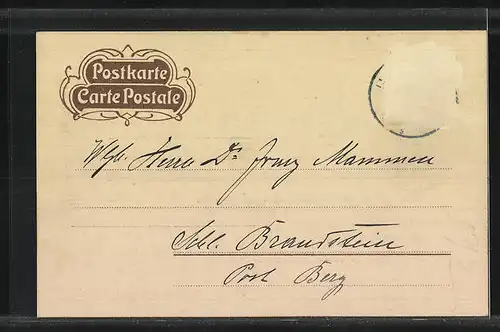 Postkarte
Carte Postale
Wgb. Herrn Dr. Franz Mammen
Schl. Brandstein
Post Berg